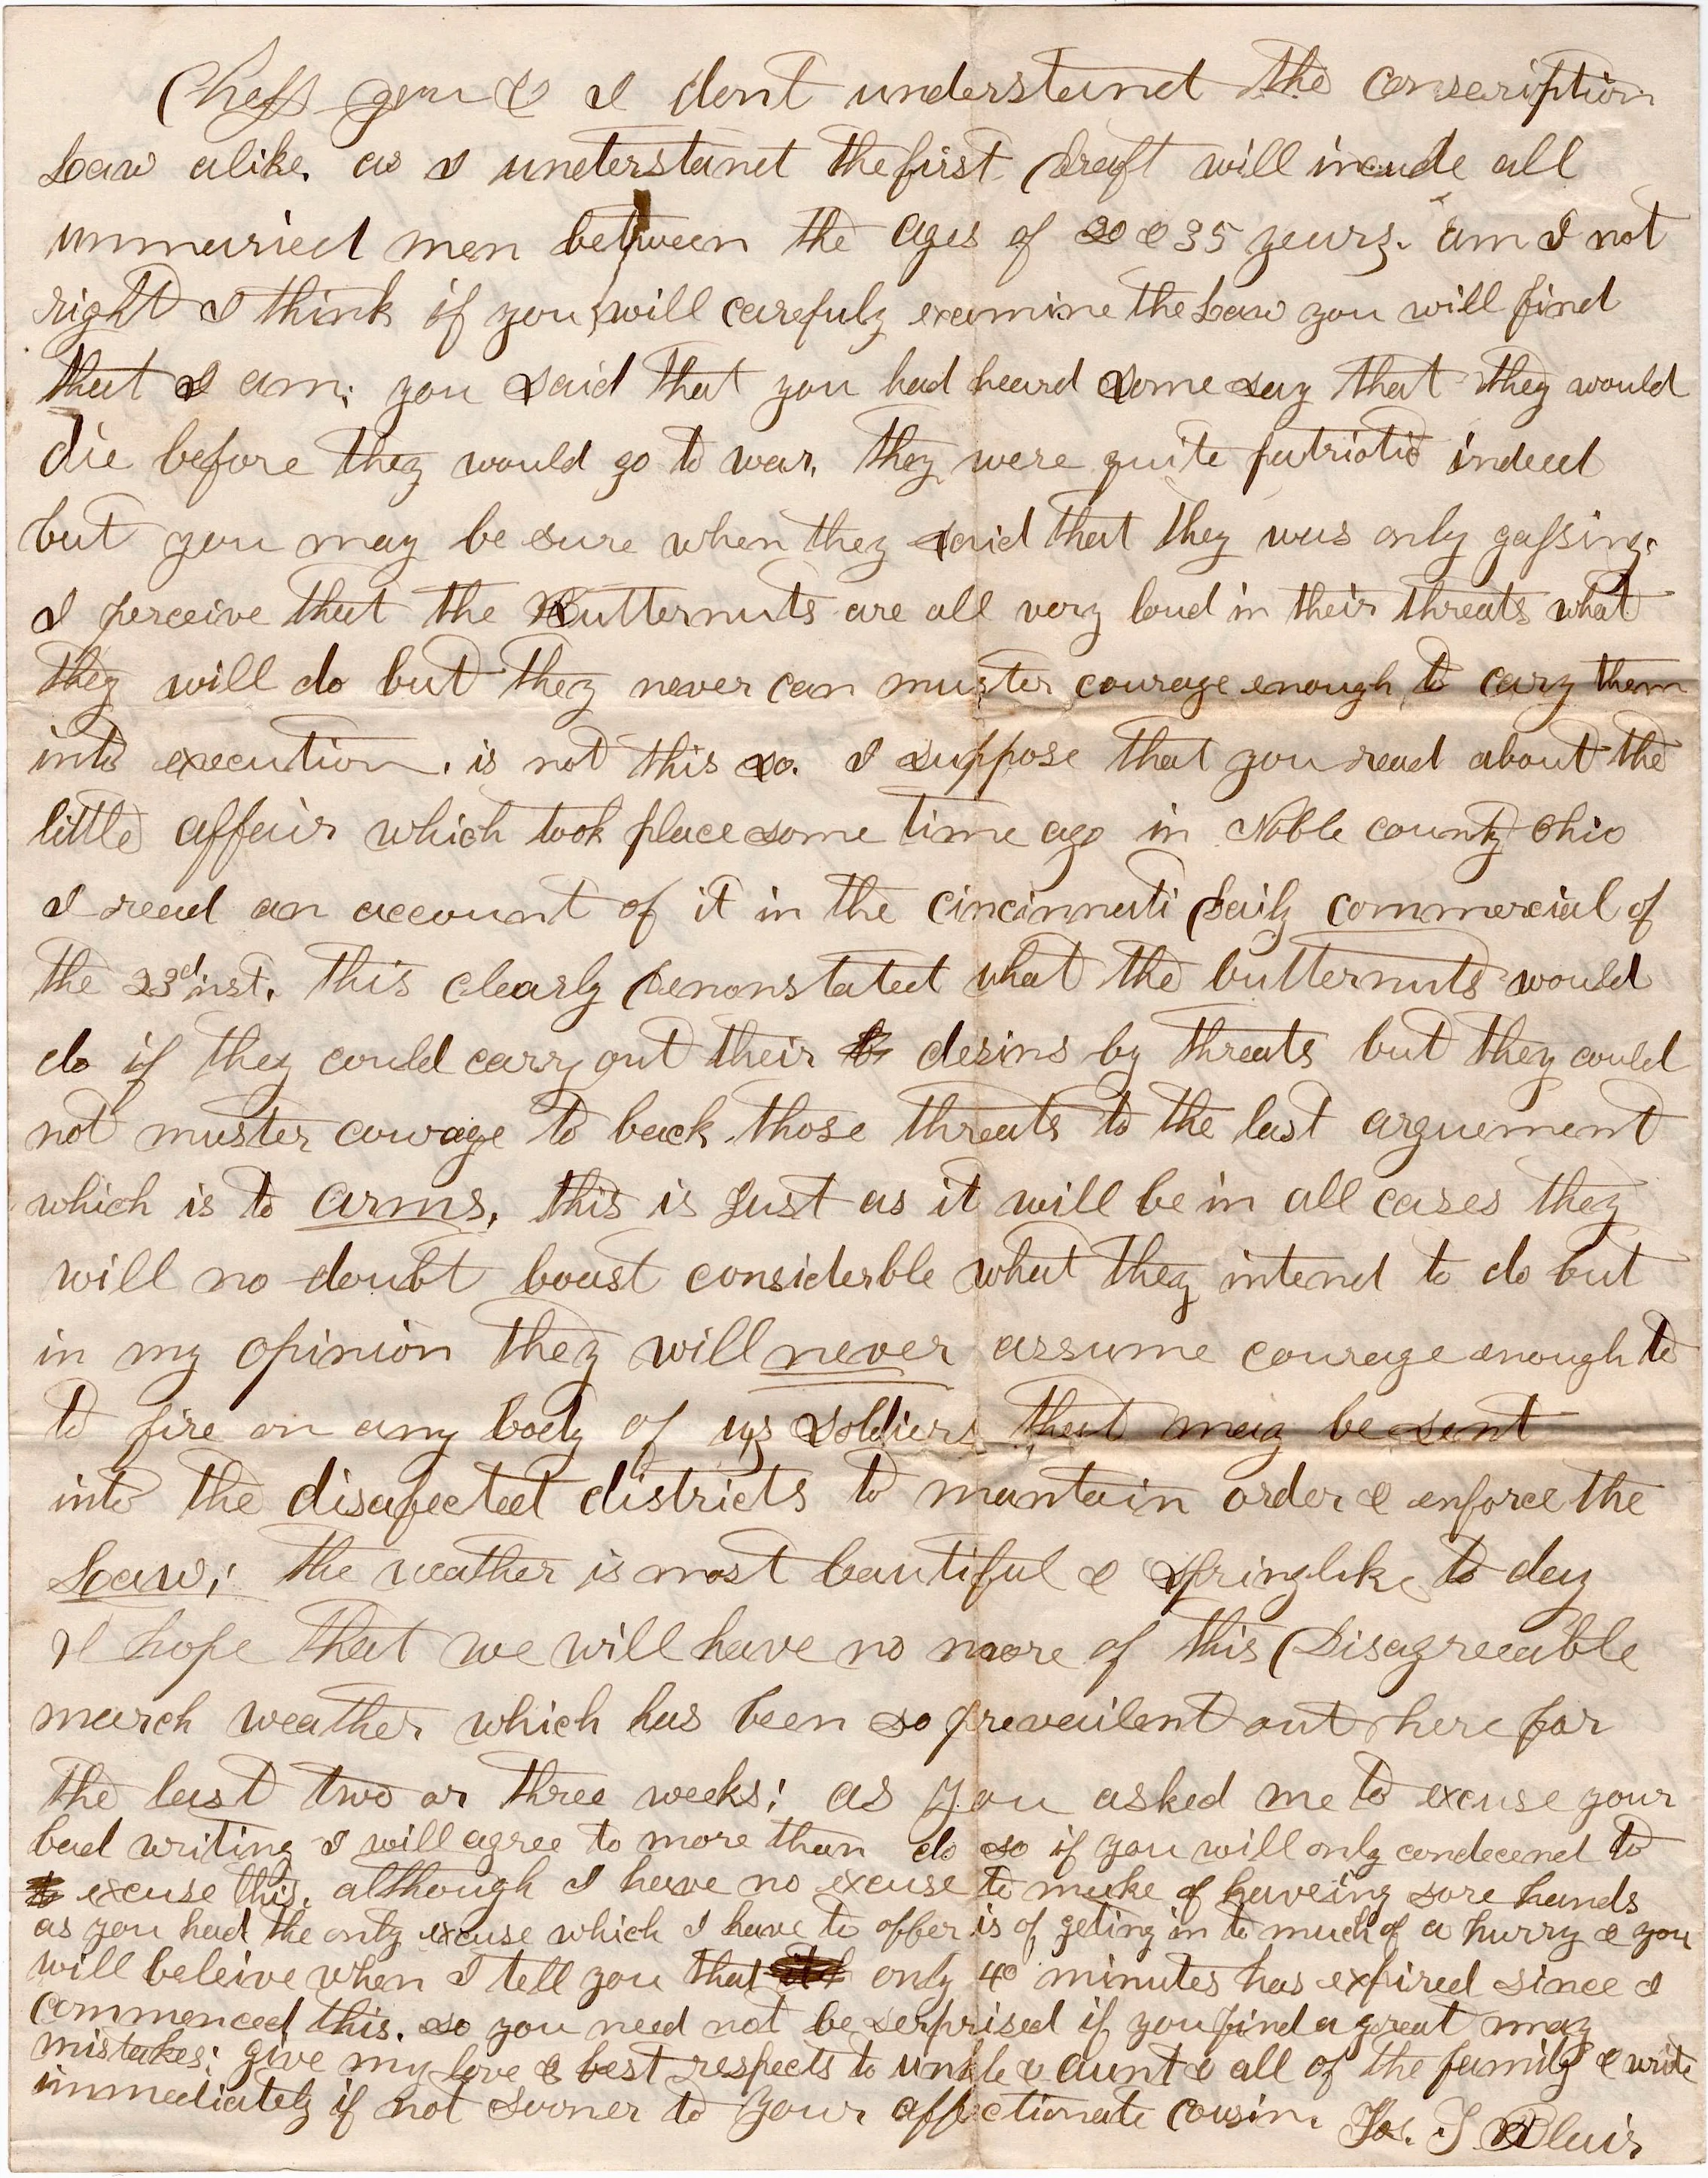 Chess you & I dont understand the conscription
Law alike. as I understand the first Draft will incude all
unmaried men between the ages of 20 & 35 years. am I not
right I think if you will carefuly examine the Law you will find
that I am; you said that you had heard some say that they would
die before they would go to war, they were quite patriotic indeed
but you may be sure when they said that they was only gassing.
I perceive that the Butternuts are all very loud in their threats what
they will do but they never can muster courage enough to cary them
into execution. is not this so. I suppose that you read about the
little affair which took place some time ago in Noble county Ohio
I read an account of it in the cincinnati Daily commercial of
the 23d inst. this clearly Demonstated what the butternuts would
do if they could carry out their desins by threats but they could
not muster courage to back those threats to the last arguement
which is to arms, this is Just as it will be in all cases they
will no doubt boast considerble what they intend to do but
in my opinion they will never assume courage enough to
to fire on any body of us soldiers that may be sent
into the disafected districts to mantain order & enforce the
Law; the weather is most beautiful & springlike to day
I hope that we will have no more of this Disagreeable
march weather which has been so prevailent out here for
the last two or three weeks; as you asked me to excuse your
bad writing I will agree to more than do so if you will only condecend to
excuse this. although I have no excuse to make of haveing sore hands
as you had the only excuse which I have to offer is of geting in to much of a hurry & you
will beleive when I tell you that only 40 minutes has expired since I
commenced this. so you need not be serprised if you find a great may
mistakes; give my love & best respects to unkle & aunt & all of the family & write
immediately if not sooner to your affectionate cousin. Jas. T Blair